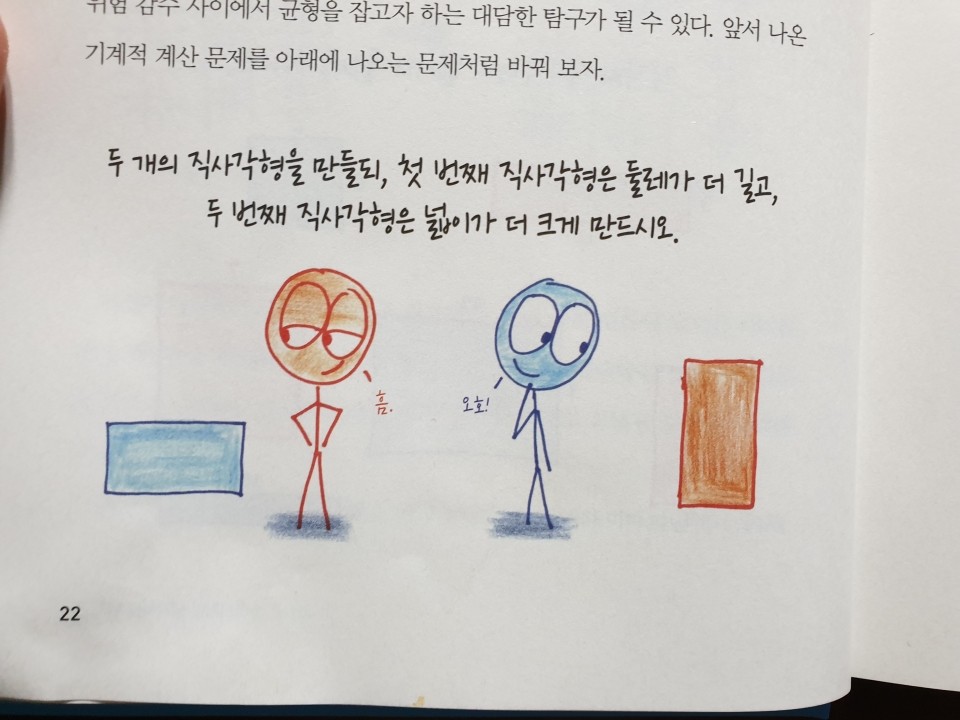 위험 감수 사이에서 균형을 잡고자 하는 대담한 탐구가 될 수 있다. 앞서 나온
기계적 계산 문제를 아래에 나오는 문제처럼 바꿔 보자.
두 개의 직사각형을 만들되, 첫 번째 직사각형은 둘레가 더 길고,
두 번째 직사각형은 넓이가 더 크게 만드시오.
흠.
오호!
22